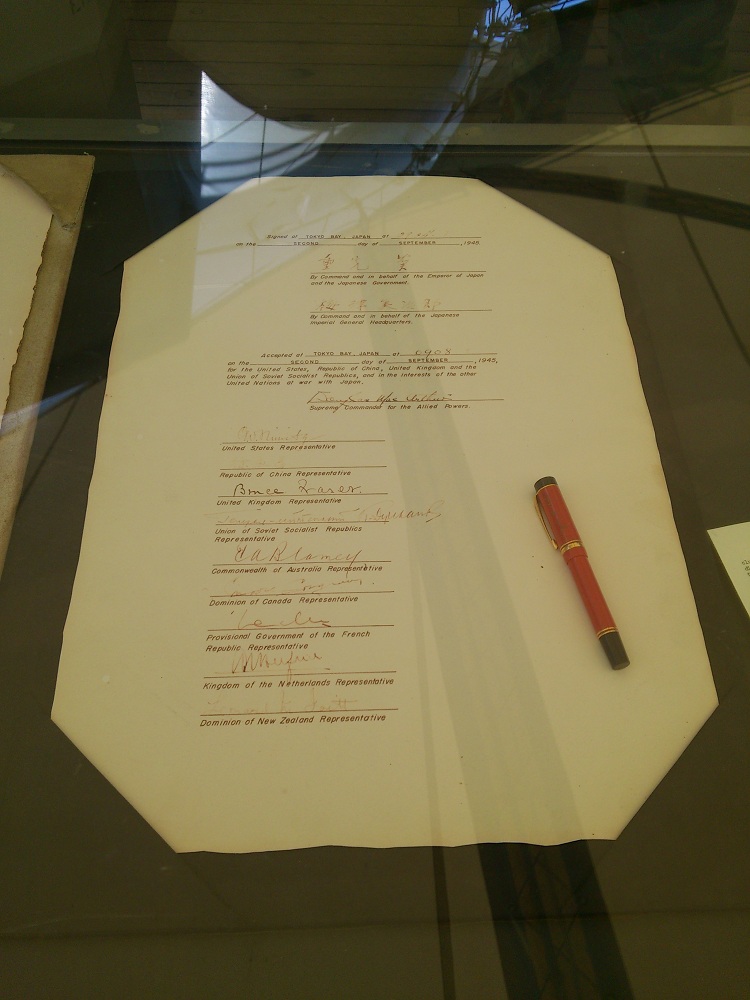 Signed at TOKYO BAY, JAPAN at
on the SECOND day of SEPTEMBER, 1945.
重光葵
By Command and in behalf of the Emperor of Japan
and the Japanese Government.
梅津美治郎
By Command and in behalf of the Japanese
Imperial General Headquarters.
Accepted at TOKYO BAY, JAPAN at 0908
on the SECOND day of SEPTEMBER, 1945,
for the United States, Republic of China, United Kingdom and the
Union of Soviet Socialist Republics, and in the interests of the other
United Nations at war with Japan.
Douglas MacArthur
Supreme Commander for the Allied Powers.
United States Representative
Republic of China Representative
Bruce Fraser
United Kingdom Representative
Union of Soviet Socialist Republics
Representative
T A Blamey
Commonwealth of Australia Representative
Dominion of Canada Representative
Provisional Government of the French
Republic Representative
Kingdom of the Netherlands Representative
Dominion of New Zealand Representative